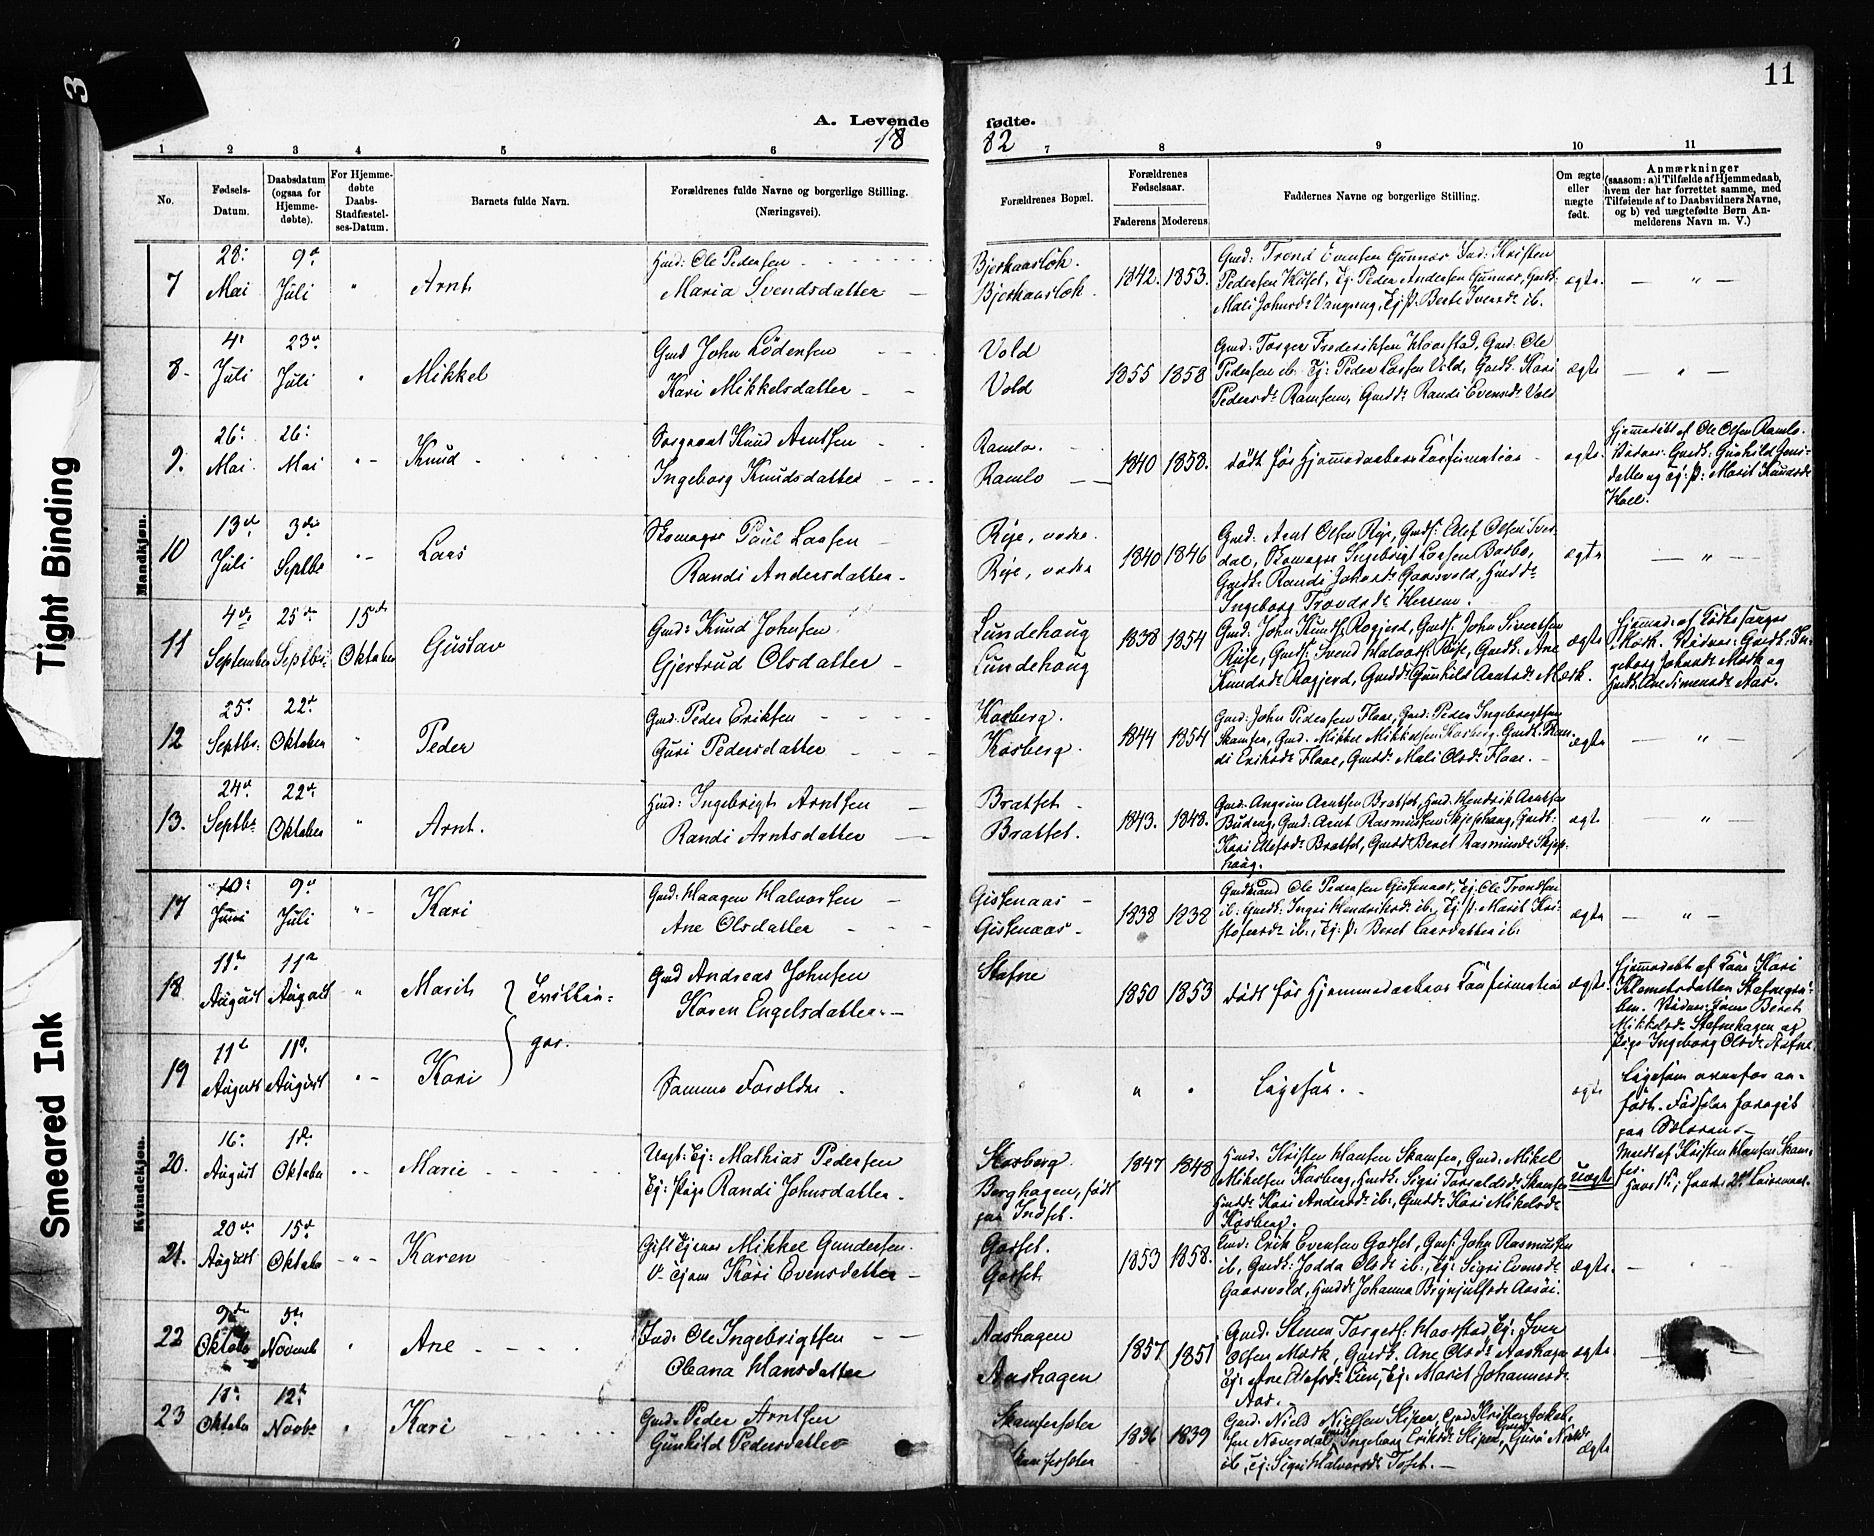 3
Tight Binding
Smeared Ink
11
A. Levende fødte.
18 82
1 2 3 4 5 6 7 8 9 10 11
No.
Fødsels-Datum.
Daabsdatum (ogsaa for Hjemmedøbte).
For Hjemmedøbte Daabs-Stadfæstelses-Datum.
Barnets fulde Navn.
Forældrenes fulde Navne og borgerlige Stilling.
(Næringsvei).
Forældrenes Bopæl.
Forældrenes Fødselsaar.
Faderens Moderens
Faddernes Navne og borgerlige Stilling.
Om ægte eller uægte født.
Anmærkninger
(saasom: a) i Tilfælde af Hjemmedaab, hvem der har forrettet samme, med Tilføiende af to Daabsvidners Navne, og b) ved uægtefødte Børn Anmelderens Navn m. V.)
Mandkjøn.
7 28: Mai 9de Juli " Arnt
Ole Pedersen
Maria Svendsdatter
Bjerkaasløk.
Bjerkaasløk.
1842. 1853.
Gmd: Trond Evensen Gunnes
Pedersen Huset, Ej: Peder Andersen Gunnes,
Mali Johnsd: Vangrng, Ej: p: Berte Ivarsd: ib.
ægte. — " —
8. 4: Juli 23de Juli " Mikkel
Gmd John Lødensen
Kari Mikkelsdatter
Vold
Vold
1855 1858
Gmd: Torger Frederiksen Haarstad, Gmd: Ole
Pedersen ib. Ej: Peder Larsen Vold, Gmdk: Kari
Pedersd: Ramsem, Gmdd: Randi Evensd: Vold
ægte — " —
9. 26: Mai. 26: Mai " - Knud
Knud Arntsen
Ingeborg Knudsdatter
Ramlo.
Ramlo
1840 1858.
død før Hjemmedaabens Confirmation
ægte.
Hjemmedøbt af Ole Olsen Ramlo.
Vidner: Gmdk: Gunhild Jensdatter og Ej: p: Marit Knudsd:
10 13de Juli 3die Septbr " - Lars
Skomager Paul Larsen
Randi Andersdatter
Rise, nedre.
Rise, nedre
1840 1846
Gmd: Arnt Olsen Rise, Gmds: Olef Olsen
Skomager Ingebrigt Larsen
Gmdk: Randi Johnsd: Gaarsvold, Gmdd:
Ingeborg Trondsd: Herrem.
ægte — " —
11 4de September 25de Septbr: 15de Oktober Gustav
Gmd: Knud Johnsen
Gjertrud Olsdatter
Lundehoug
Lundehoug
1838 1854
Gmd: John Knuds: Rogjerd, Gmds: John Sivertsen
Rise, Gmds: Svend Halvors: Rise, Gmdk: Ane
Knudsd: Rogjerd, Gmdd: Gunhild Arntsd: Mærk.
ægte
Mærk. Vidner: Gmdk: Ingeborg Johnsd: Mærk og
Gmdk: Ane Simensd: Aas.
12 25: Septbr: 22de Oktober " Peder
Gmd: Peder Eriksen
Guri Pedersdatter
Kosberg.
Kosberg.
1844 1854
Gmd: John Pedersen Flaae, Gmd: Peder Ingebrigtsen
Skamfer, Gmd. Mikkel Mikkelsen Kosberg. Gmdk: Randi Eriksd: Flaae, Gmdd: Mali Olsd: Flaae.
ægte — " —
13. 24de Septbr 22de Oktober " Arnt.
Hmd: Ingebrigt Arntsen
Randi Arntsdatter
Bratset
Bratset.
1843. 1848.
Gmd: Angrim Arntsen Bratset, Gmd: Hendrik Arntsen
Gmd: Arnt Rasmussen Skjephaug, Gmdk:
Kari Olefsd: Bratset, Gmdd: Beret Rasmusd: Skjephaug.
ægte — " —
Kvindekjøn.
17 10: Juni 9de Juli " - Kari
Gmd: Haagen Halvorsen
Ane Olsdatter
Gisenaas
Gisenaas
1838 1838
Ole Pedersen Gisenaas, Ej: Ole Trondsen
ib. Gmdk: Ingri Hendriksd: ib., Ej: p: Marit Kristofersd: ib., Ej: p: Beret Larsdatter ib.
ægte — " —
18 11te August 11te August " Marit } Tvillinger.
Gmd Andreas Johnsen
Karen Engelsdatter
Stafne
1850 1853
død før Hjemmedaabens Confirmation
ægte.
Hjemmedøbt af Kone Kari
Klemetsdatter
Vidner: Kone Beret
Mikkelsd: Stafnehagen og
Pige Ingeborg Olsd: Stafne
19 11te August 11te August " - Kari
Samme Forældre
" "
Ligesaa.
ægte
Ligesaa ovenfor anført. Fødselen foregik paa
20. 16: August 1ste Oktober " Marie
Ugift Ej: Mathias Pedersen
Ej: Pige Randi Johnsdatter
Kosberg.
Berghagen, født paa Indset.
1847 1848
Gmd: Kristen Hansen Skamfer, Gmd: Mikel
Mikelsen Kosberg, Gmdk: Sigri Torvaldsd: Skamfer
Gmdd: Kari Andersd: ib., Gmdd: Kari Mikelsd:
Kosberg.
uægte
Meldt af Kristen Hansen Skamfer
21. 20de August 15de Oktober " - Karen
Gift Ejmd Mikkel Gundersen.
Kari Evensdatter
Gorset.
Gorset
1853 1858.
Gmd: Erik Evensen Gorset, Gmd: John Rasmussen
ib, Gmdk: Jodda Olsd: ib., Ej: Sigri Evensd:
Gaarsvold, Gmdd: Johanna Brynjulfsd: Aasøi.
ægte. — "
22 9de Oktober 5te Novemb " Ane
Ind: Ole Ingebrigtsen
Oleana Hansdatter
Aashagen
Aashagen
1857 1851
Gmd: Stener Torgers: Haarstad, Ej: Iver
Olsen Mærk, Gmdk: Ane Olsd: Aashagen
Ej: Ane Olefsd: Lien, Ej: Marit Johannesd:
Aas.
ægte.
23 11te Oktober 12te Novbr " Kari
Gmd: Peder Arntsen
Gunhild Pedersdatter
Skamfersæter
Skamfersæter
1836 1839
Gmd: Niels Nielsen Sliper, Gmd Kristen
Næverdal, Ingeborg Eriksd: Sliper, Guru Nielsd:
ib., Ej: Sigri Halvorsd: Toset.
ægte